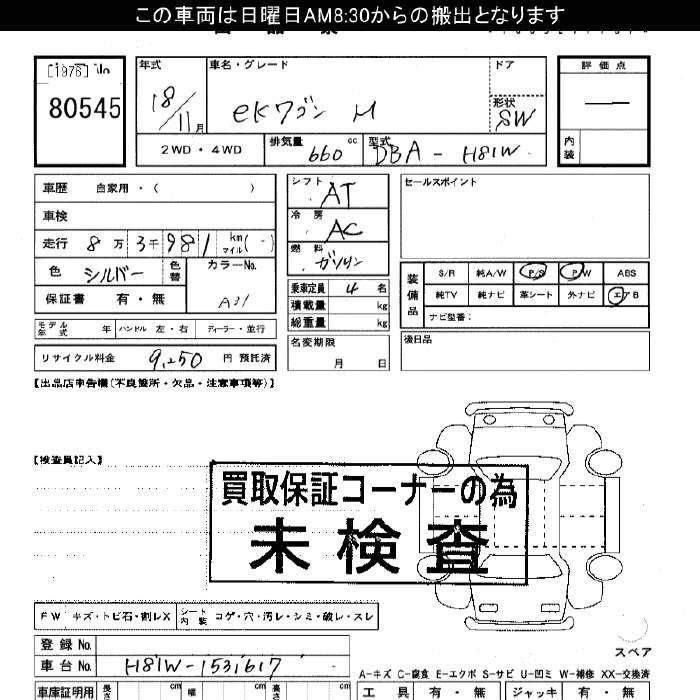 この車両は日曜日AM8:30からの搬出となります
[1976] No
80545
年式
18/11月
車名・グレード
eKワゴン M
ドア
形状
SW
評価点
―
内装
2WD・4WD
排気量 660 cc
型式 DBA-H81W
車歴 自家用・( )
車検
走行 8万3千981 km マイル(-)
色 シルバー 色替
カラーNo. A31
保証書 有・無
モデル年式 年 ハンドル 左・右 ディーラー・並行
リサイクル料金 9,250 円 預託済
シフト AT
冷房 AC
燃料 ガソリン
乗車定員 4 名
積載量 kg
総重量 kg
名変期限
月 日
セールスポイント
装備品
S/R 純A/W P/S P/W ABS
純TV 純ナビ 革シート 外ナビ エアB
ナビ型番:
後日品
【出品店申告欄(不良箇所・欠品・注意事項等)】
【検査員記入】
買取保証コーナーの為
未検査
FW キズ・トビ石・割レX
シート内装 コゲ・穴・汚レ・シミ・破レ・スレ
登録No.
車台No. H81W-1531617
スペア
A-キズ C-腐食 E-エクボ S-サビ U-凹ミ W-補修 XX-交換済
車庫証明用 長さ cm 幅 cm 高さ cm
工具 有・無 ジャッキ 有・無